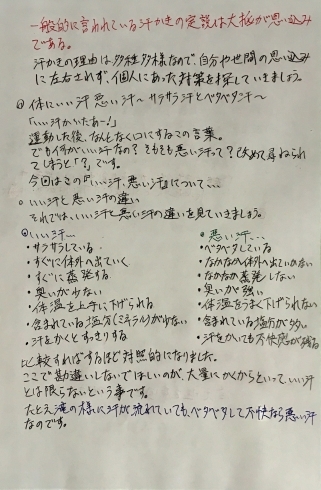 一般的に言われている汗かきの定説は大抵が思い込み
である。
汗かきの理由は多種多様なので、自分や世間の思い込み
に左右されず、個人にあった対策を探していきましょう。
体にいい汗悪い汗〜サラサラ汗とベタベタ汗〜
「いい汗かいたあ〜!」
運動した後、なんとなく口にするこの言葉。
でも何がいい汗なの？そもそも悪い汗って？改めて尋ねられ
てしまうと「？」です。
今回はこの『いい汗、悪い汗』について…
○いい汗と悪い汗の違い
それでは、いい汗と悪い汗の違いを見ていきましょう。
いい汗〜
・サラサラしている
・すぐに体外へ出ていく
・すぐに蒸発する
・臭いが少ない
・体温を上手に下げられる
・含まれている塩分(ミネラル)が少ない
・汗をかくとすっきりする
悪い汗…
・ベタベタしている
・なかなか体外へ出ていかない
・なかなか蒸発しない
・臭いが強い
・体温をうまく下げられない
・含まれている塩分が多い
・汗をかいても不快感が残る
比較すればするほど対照的になりました。
ここで勘違いしないでほしいのが、大量にかくからといっていい汗
とは限らないという事です。
たとえ滝の様に汗が流れていても、ベタベタして不快なら悪い汗
なのです。